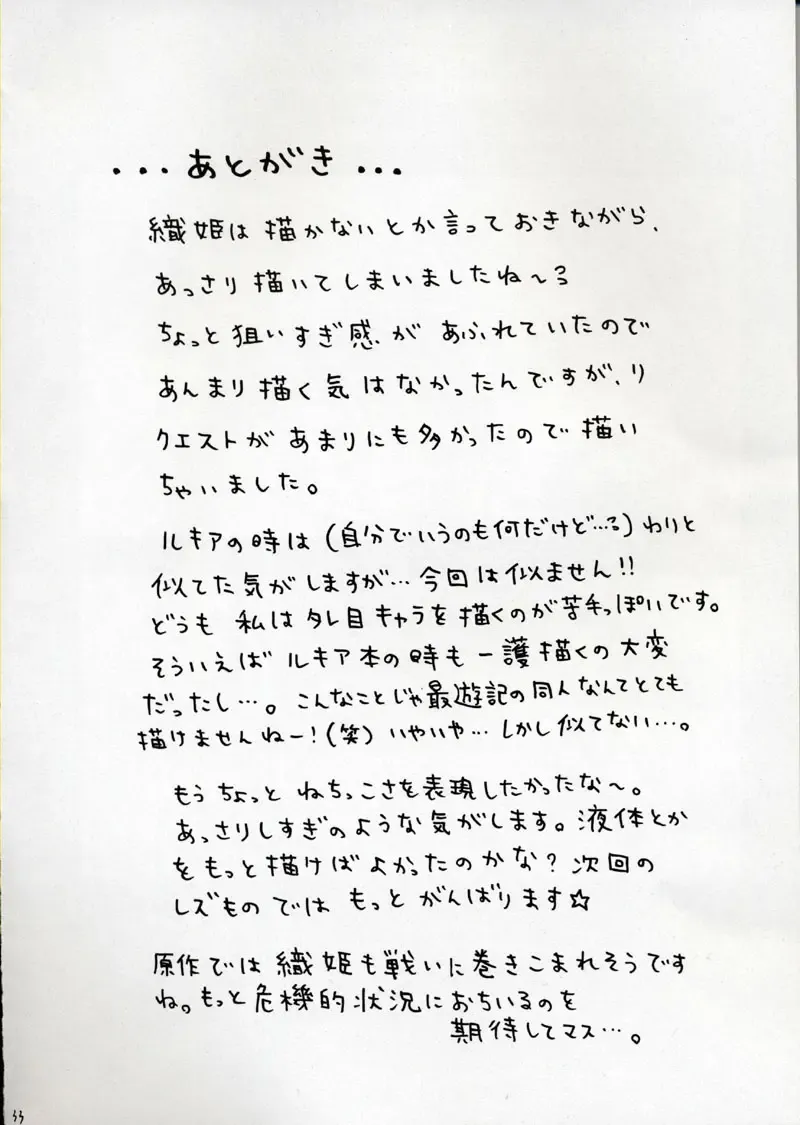 ...あとがき...
織姫は描かないとか言っておきながら、
あっさり描いてしまいましたね〜?
ちょっと狙いすぎ感が あふれていたので
あんまり描く気はなかったんですが、リ
クエストがあまりにも多かったので描い
ちゃいました。
ルキアの時は(自分でいうのも何だけど…?)わりと
似てた気がしますが…今回は似ません!!
どうも 私はタレ目キャラを描くのが苦手っぽいです。
そういえばルキア本の時も一護描くの大変
だったし…。こんなことじゃ最遊記の同人なんてとても
描けませんねー!(笑)いやいや…しかし似てない…。
もうちょっと ねちっこさを表現したかったな〜。
あっさりしすぎのような気がします。液体とか
をもっと描けばよかったのかな?次回の
レズものでは もっと がんばります☆
原作では織姫も戦いに巻きこまれそうです
ね。もっと危機的状況におちいるのを
期待してマス…。
33